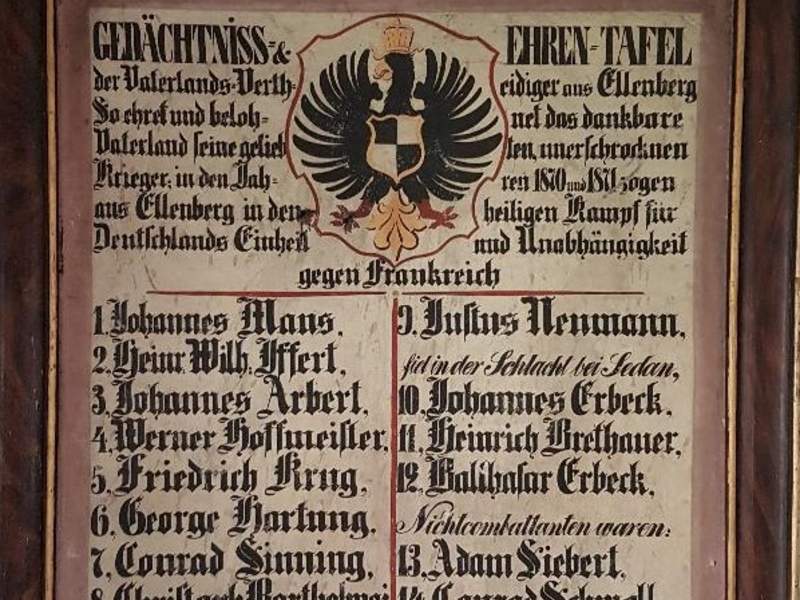 GEDÄCHTNISS=& EHREN=TAFEL
der Vaterlands=Verth= eidiger aus Ellenberg
So ehret und beloh= net das dankbare
Vaterland seine gelieb ten, unerschrocknen
Krieger; in den Jah= ren 1870 und 1871 zogen
aus Ellenberg in den heiligen Kampf für
Deutschlands Einheit und Unabhängigkeit
gegen Frankreich
1. Johannes Maus.
2. Heinr. Wilh. Iffert.
3. Johannes Arbert.
4. Werner Hoffmeister.
5. Friedrich Krug.
6. George Hartung.
7. Conrad Sinning.
8. Christoph Barthelmei
9. Justus Neumann.
fiel in der Schlacht bei Sedan,
10. Johannes Erbeck.
11. Heinrich Brethauer.
12. Balthasar Erbeck.
Nichtcombattanten waren:
13. Adam Siebert.
14. Conrad